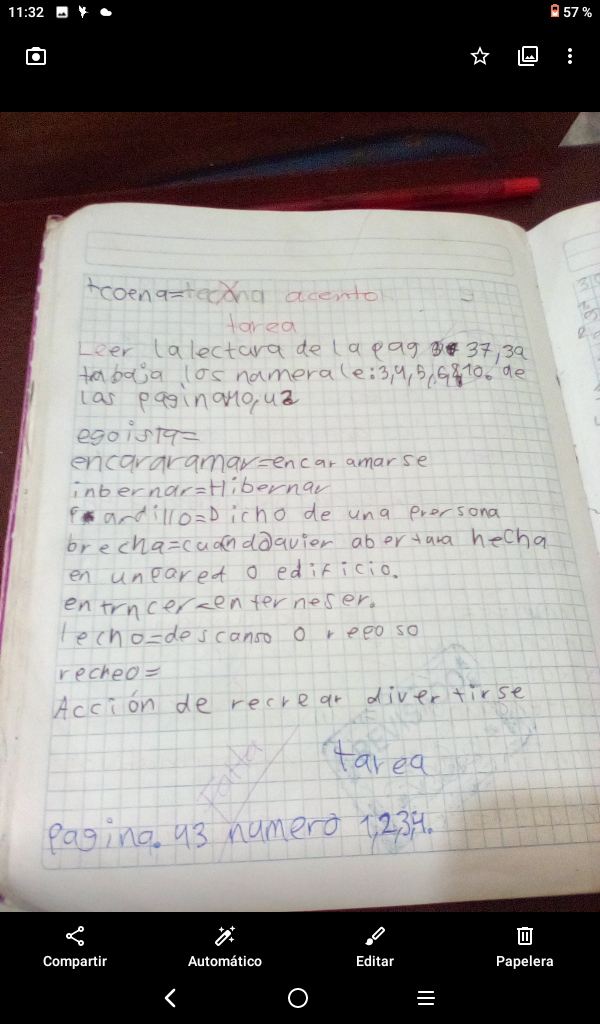 11:32
57 %
tcoena=tecxna acento
tarea
Leer la lectura de la pag 37, 3a
tabaja los namerale:3,4,5,6,8,10. de
las paginario, uz
egoista=
encararamar=encaramarse
inbernar=Hibernar
ardillo=Dicho de una prersona
brecha=cuandqavier abertara hecha
en unpared o edificio.
entrncer=enterneser.
lecho=descanso o reposo
recheo=
Acción de recrear divertirse
REVISADO
tarea
pagina. 43 numero 1,2,3,4.
Compartir
Automático
Editar
Papelera